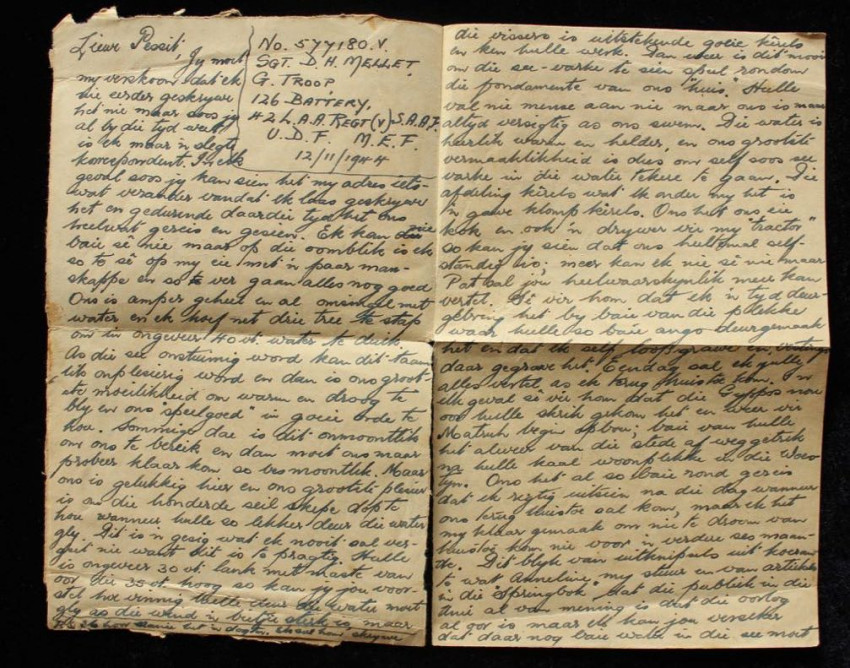 Liewe Pessit,
No. 577180.V.
SGT. D. H. MELLET.
G. TROOP,
126 BATTERY,
42 L.A.A. REGT (V) S.A.A.F.
U.D.F. M.E.F.
12/11/1944
Jy moet
my verskoon dat ek
nie eerder geskrywe
het nie maar soos jy
al by die tyd weet
is ek maar 'n slegte
korrespondent. In elk
geval soos jy kan sien het my adres iets-
wat verander vandat ek laas geskrywe
het en gedurende daardie tyd het ons
heelwat gereis en gesien. Ek kan nie
baie sê nie maar op die oomblik is ek
so te sê op my eie met 'n paar man-
skappe en so ver gaan alles nog goed
Ons is amper geheel en al omsingel met
water en ek hoef net drie tree te stap
om in ongeveer 40 vt. water te duik.
As die see onstuimig word kan dit taam-
lik onplesierig word en dan is ons groot-
ste moeilikheid om warm en droog te
bly en ons "speelgoed" in goeie orde te
hou. Sommige dae is dit onmoontlik
om ons te bereik en dan moet ons maar
probeer klaar kom so bes moontlik. Maar
ons is gelukkig hier en ons grootste plesier
is om die honderde seil skepe dop te
hou wanneer hulle so lekker deur die water
gly. Dit is 'n gesig wat ek nooit sal ver-
geet nie want dit is te pragtig. Hulle
is ongeveer 30 vt. lank met maste van
oor die 35 vt. hoog so kan jy jou voor-
stel hoe vinnig hulle deur die water moet
gly as die wind 'n bietjie sterk is, maar
die vissers is uitstekende goeie kêrels
en ken hulle werk. Dan weer is dit mooi
om die see-varke te sien speel rondom
die fondamente van ons "huis." Hulle
val nie mense aan nie maar ons is maar
altyd versigtig as ons swem. Die water is
heerlik warm en helder, en ons grootste
vermaaklikheid is dies om self soos see
varke in die water tekere te gaan. Die
afdeling kêrels wat ek onder my het is
'n gawe klomp kêrels. Ons het ons eie
kok en ook 'n drywer vir my "tractor"
so kan jy sien dat ons heeltemal self-
standig is; meer kan ek nie sê nie maar
Pat sal jou heelwaarskynlik meer kan
vertel. Sê vir hom dat ek 'n tyd deur-
gebring het by baie van die plekke
waar hulle so baie angs deurgemaak
het en dat ek self loopgrawe en
daar gegrawe het. Eendag sal ek julle
alles vertel as ek terug huistoe kom. In
elk geval sê vir hom dat die Gyppos nou
oor hulle skrik gekom het en weer vir
Matruh begin opbou; baie van hulle
het alweer van die stede af weggetrek
na hulle kaal woonplekke in die woes-
tyn. Ons het al so baie rond gereis
dat ek regtig uitsien na die dag wanneer
ons terug huistoe sal kom, maar ek het
my klaar gemaak om nie te droom van
huistoe kom nie voor 'n verdere ses maan-
de. Dit blyk van uitknipsels uit koerante
te wat Anneline my stuur en van artiekels
in die "Springbok" dat die publiek in die
Unie al van mening is dat die oorlog
al oor is maar ek kan jou verseker
dat daar nog baie water in die see moet